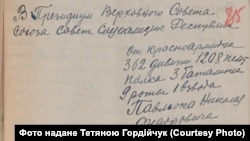 В Президиум Верховного Совета
Союза Совет Социалист Республик
от красноармейца
362 дивизии 1208 
полка 3 батальона
9 роты 1 взвода
Павлюка Николая
Фото надане Тетяною Гордійчук (Courtesy Photo)